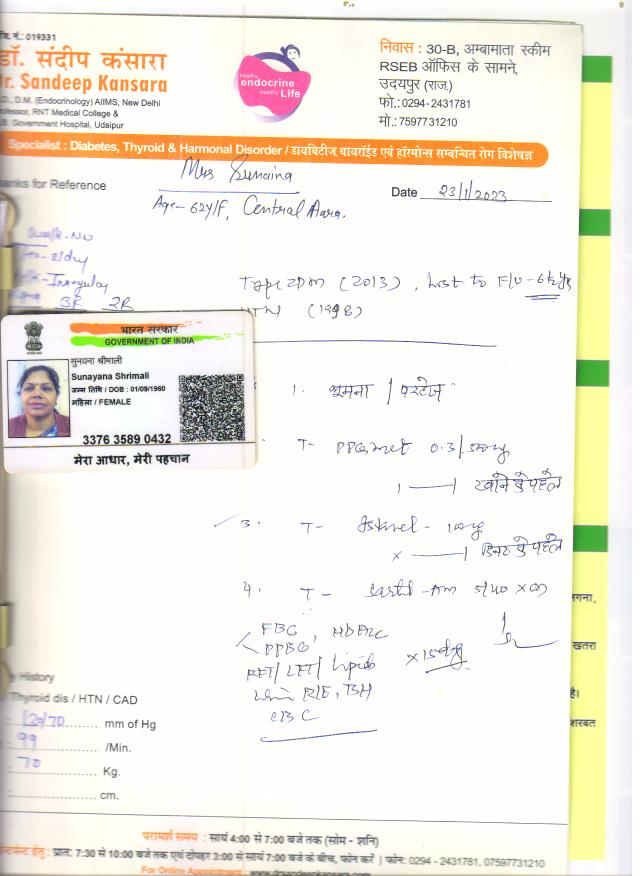 जि. नं.: 019331
डॉ. संदीप कंसारा
Dr. Sandeep Kansara
D., D.M. (Endocrinology) AIIMS, New Delhi
ofessor, RNT Medical College &
B. Government Hospital, Udaipur
healthy
endocrine
healthy Life
निवास : 30-B, अम्बामाता स्कीम
RSEB ऑफिस के सामने,
उदयपुर (राज.)
फो.:0294-2431781
मो.:7597731210
Specialist : Diabetes, Thyroid & Harmonal Disorder / डायबिटीज, थायरॉईड एवं हॉरमोन्स सम्बन्धित रोग विशेषज्ञ
anks for Reference
Mrs Sunaina
Date 23/1/2023
Age- 62y/F, Central Aara.
Type 2 DM (2013), lost to F/U - 6
HTN (1998)
भारत सरकार
GOVERNMENT OF INDIA
सुनयना श्रीमाली
Sunayana Shrimali
जन्म तिथि / DOB : 01/09/1960
महिला / FEMALE
3376 3589 0432
मेरा आधार, मेरी पहचान
1. घूमना / परहेज
T- PPG met 0.3/500mg
1 — 1 खाने से पहले
3. T- 10mg
x — 1 डिनर से पहले
4. T- -AM 5/40 x OD
FBG, HbA1c
PPBG
RFT/ LFT/ Lipids x 15 days
R/E, TSH
CBC
गना,
खतरा
है।
शरबत
y History
Thyroid dis / HTN / CAD
: 120/70 mm of Hg
: 99 /Min.
: 70 Kg.
: cm.
परामर्श समय : सायं 4:00 से 7:00 बजे तक (सोम - शनि)
न्टमेन्ट हेतु : प्रात: 7:30 से 10:00 बजे तक एवं दोपहर 3:00 से सायं 7:00 बजे के बीच, फोन करें | फोन: 0294 - 2431781, 07597731210
For Online Appointment : www.drsandeepkansara.com